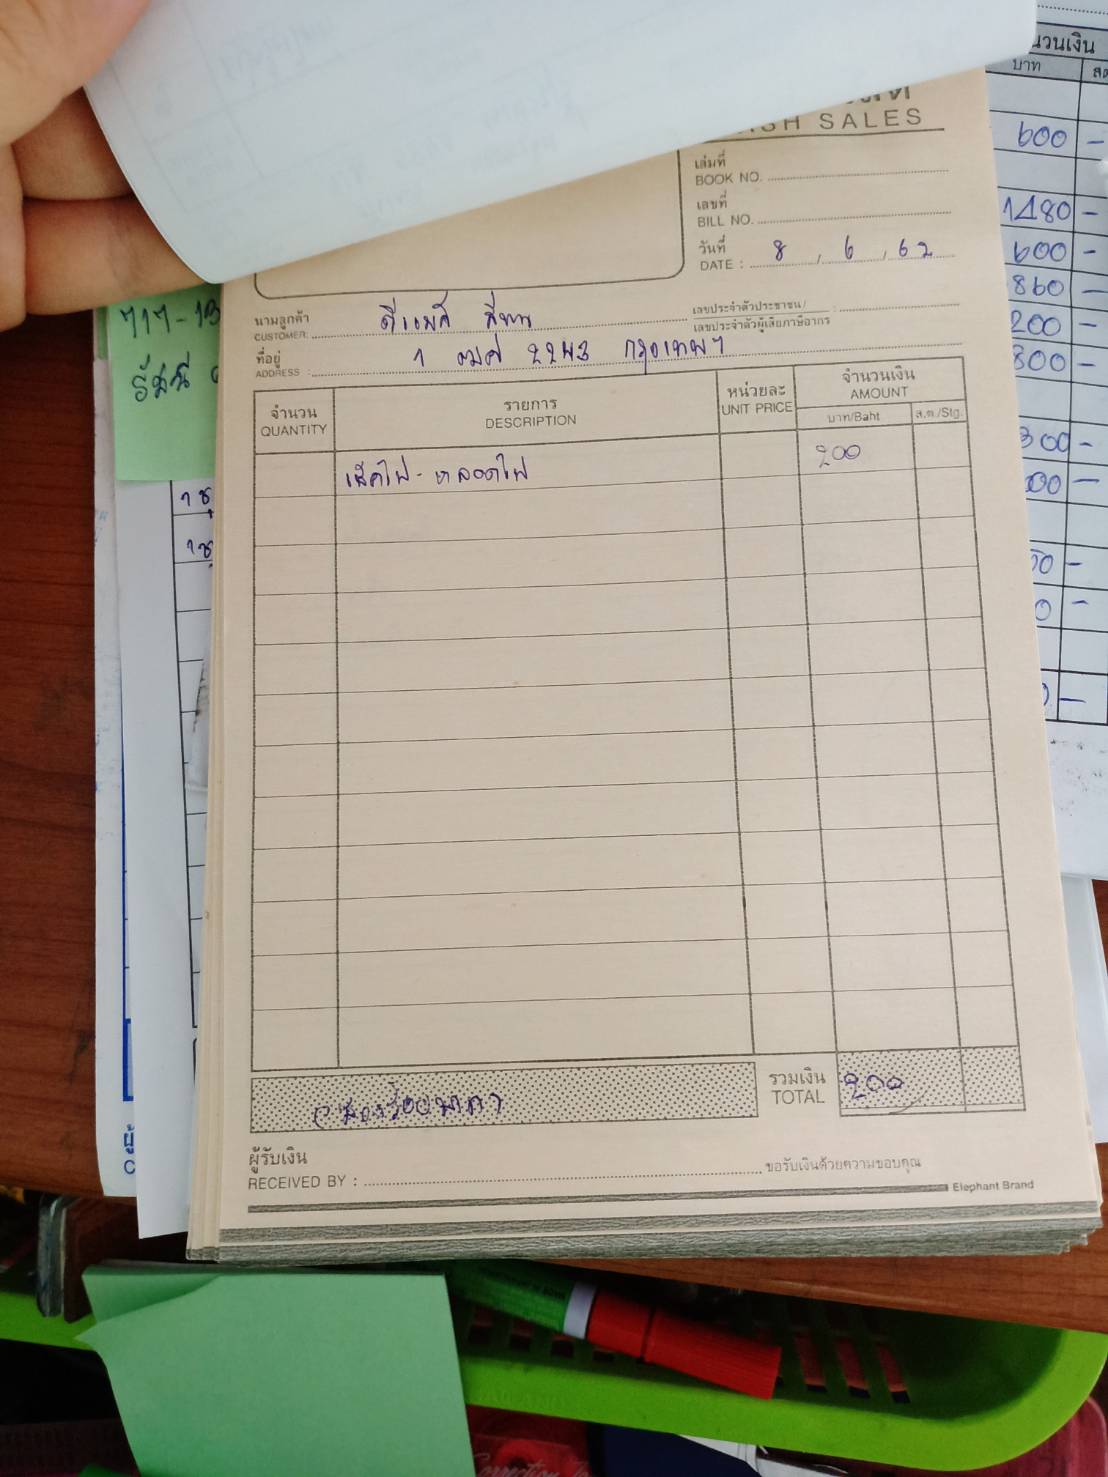 SH SALES
เล่มที่
BOOK NO.
เลขที่
BILL NO.
วันที่
DATE : 8 , 6 , 62
นามลูกค้า
CUSTOMER:
เลขประจำตัวประชาชน/
เลขประจำตัวผู้เสียภาษีอากร
ที่อยู่
ADDRESS : 1 กรุงเทพฯ
จำนวน
QUANTITY
รายการ
DESCRIPTION
หน่วยละ
UNIT PRICE
จำนวนเงิน
AMOUNT
บาท/Baht
ส.ต./Stg.
เช็คไฟ - หลอดไฟ 200
สองร้อยบาท
รวมเงิน
TOTAL
200
ผู้รับเงิน
RECEIVED BY :
ขอรับเงินด้วยความขอบคุณ
Elephant Brand
717-13
วนเงิน
บาท
600 -
1480 -
600 -
860 -
200 -
300 -
300 -
00 -
0 -